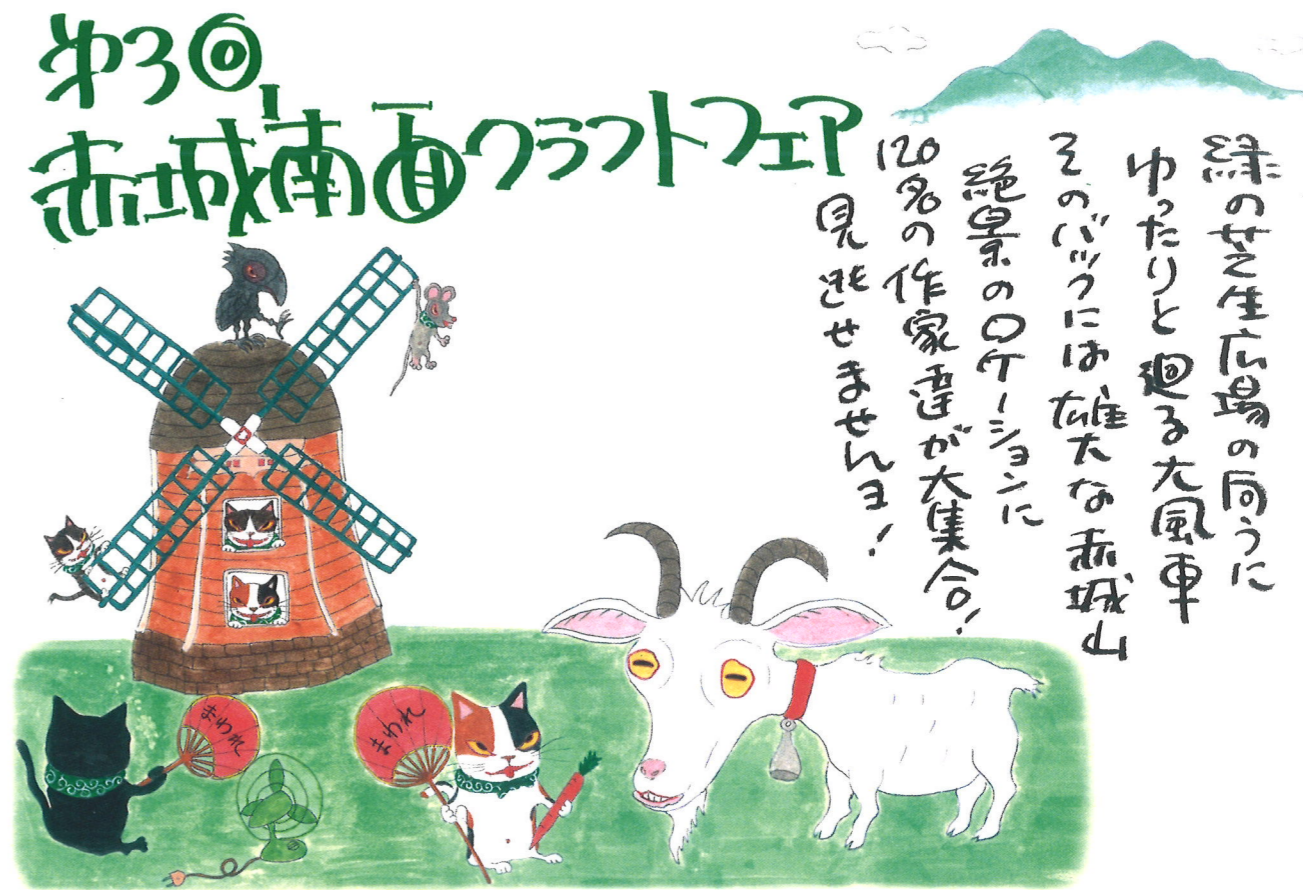 第3回
赤城南面クラフトフェア
緑の芝生広場の向うに
ゆったりと廻る大風車
そのバックには雄大な赤城山
絶景のロケーションに
120名の作家達が大集合!
見逃せませんヨ!
まわれ
まわれ